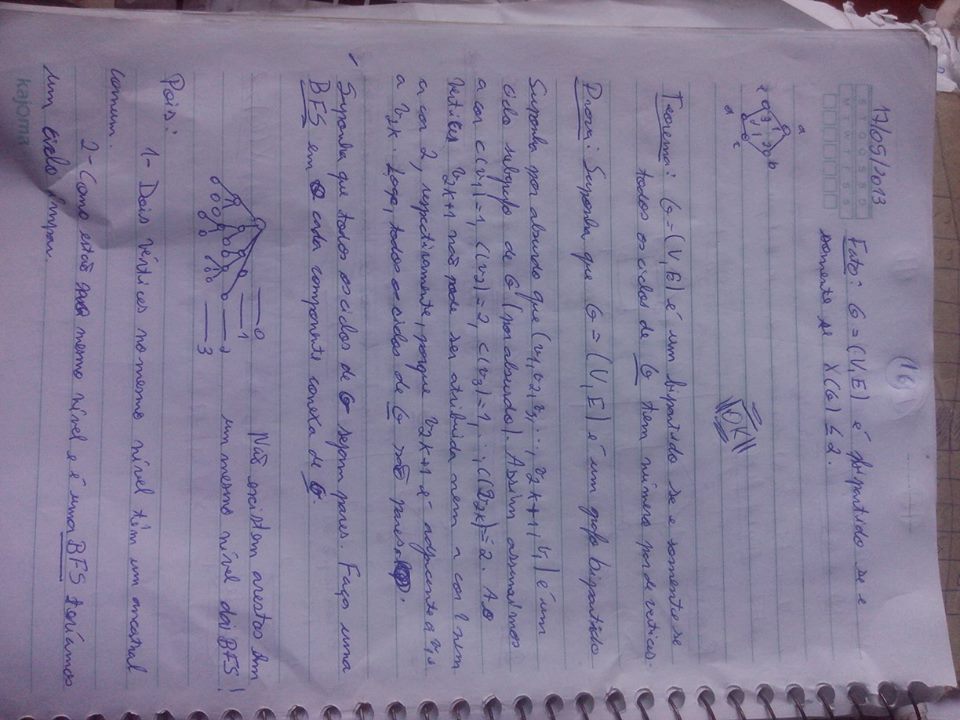 17/05/2013
S T Q Q S S D
S M T W T F S
16
Fato: G=(V,E) é bipartido se e
somente se χ(G) ≤ 2.
a
b
c
d
OK
Teorema: G=(V,E) é um bipartido se e somente se
todos os ciclos de G tem número par de vertices.
Prova: Suponha que G=(V,E) é um grafo bipartido
Suponha por absurdo que (v1,v2,v3,...,v2k+1,v1) é um
ciclo de G (por absurdo). Assim assinalamos
a cor c(v1)=1, c(v2)=2, c(v3)=1,..., c(v2k)=2. Ao
vértice v2k+1 não pode ser atribuida nem a cor 1 nem
a cor 2, respectivamente, porque v2k+1 é adjacente a v1 e
a v2k. Logo, todos os ciclos de G são pares.
Suponha que todos os ciclos de G sejam pares. Faça uma
BFS em cada componente conexa de G.
0
1
2
3
Não existem arestas em
um mesmo nível da BFS!
Pois:
1- Dois vértices no mesmo nível têm um ancestral
comum.
2- Como estão no mesmo nível e é uma BFS teríamos
um ciclo ímpar.
kajoma